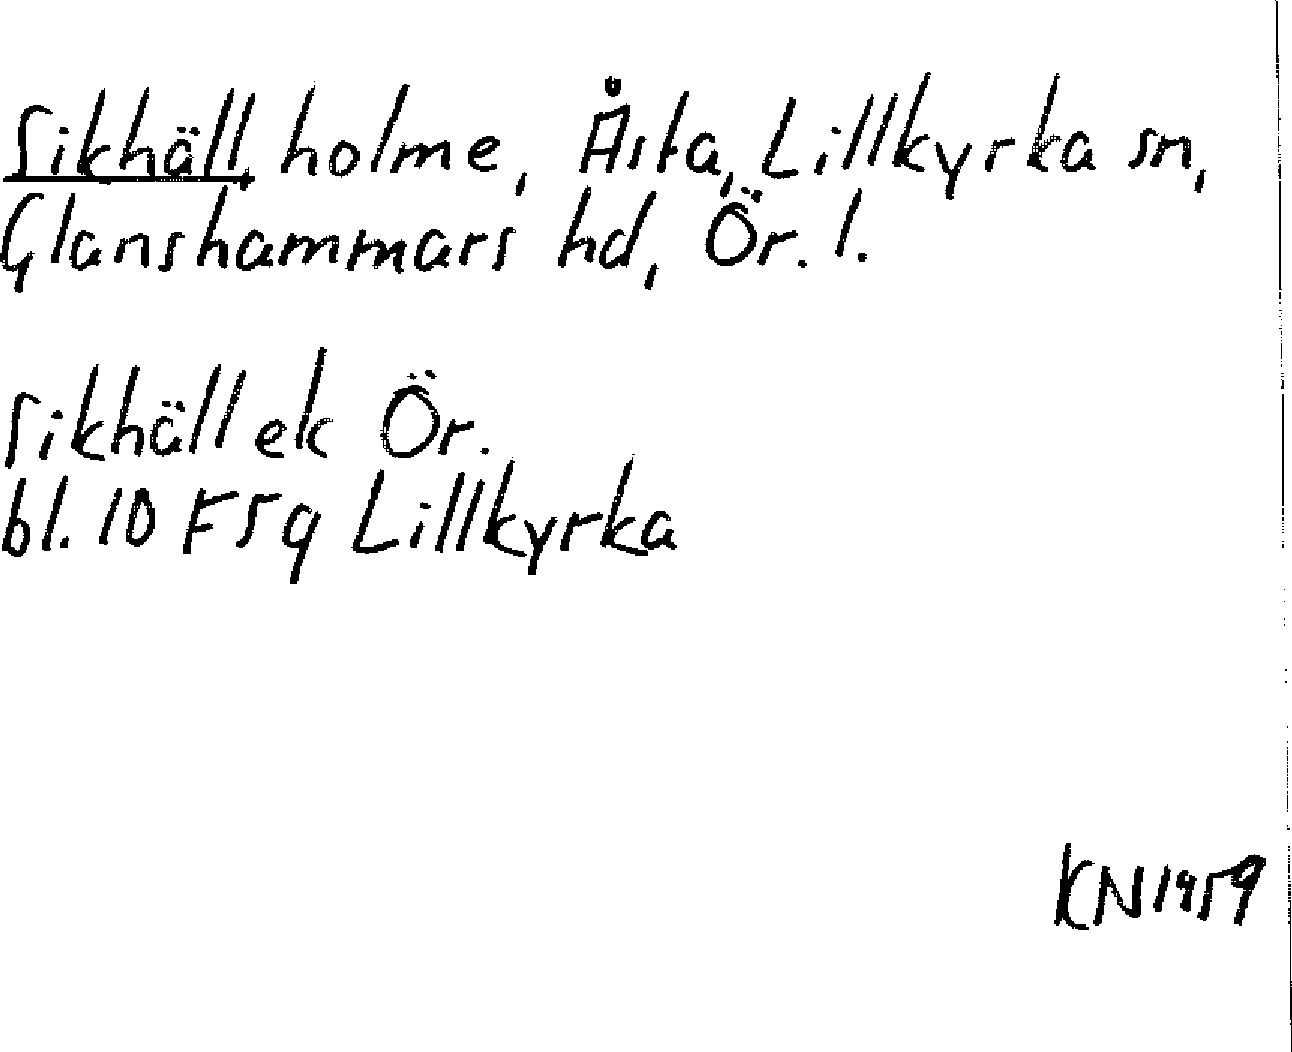 Sikhäll, holme, Åsta, Lillkyrka sn,
Glanshammars hd, Ör. l.
Sikhäll ek Ör.
bl. 10 F5q Lillkyrka
KN 1959